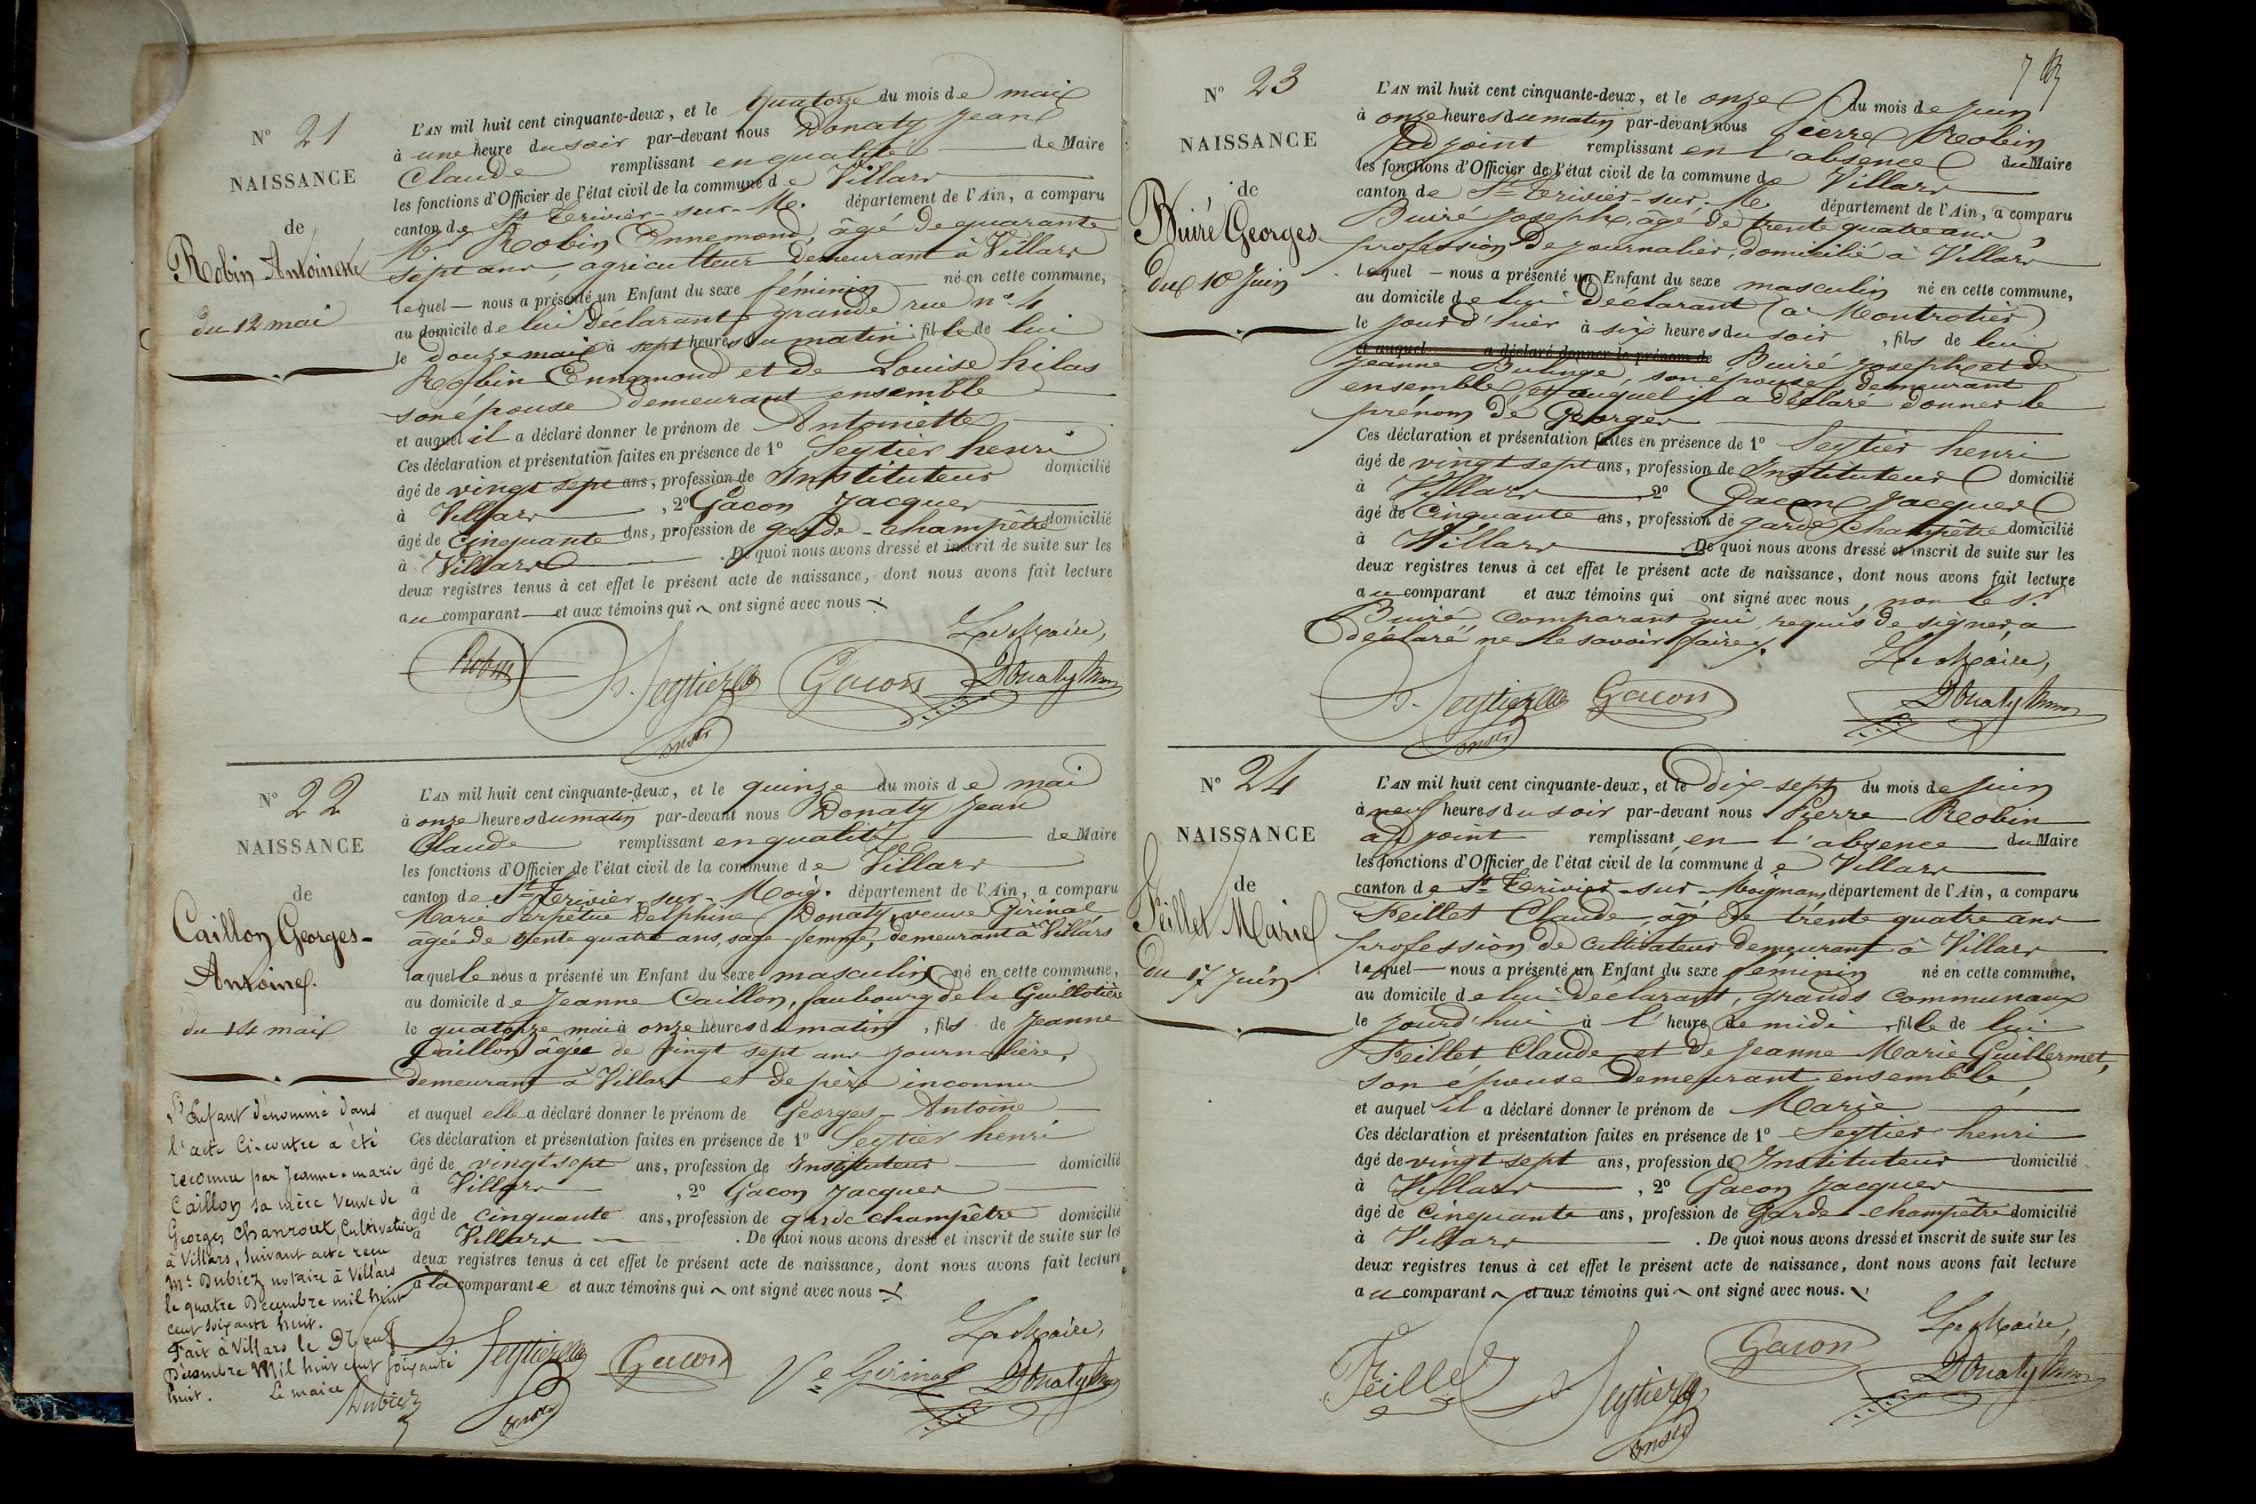 N° 21
NAISSANCE
de
Robin Antoinette
du 12 mai
L'AN mil huit cent cinquante-deux, et le quatorze du mois de mai
à une heure du soir par-devant nous Donaty Jean
Claude remplissant en qualité de Maire
les fonctions d'Officier de l'état civil de la commune de Villars
canton de St Trivier-sur-Mo. département de l'Ain, a comparu
Mr Robin Ennemond, âgé de quarante
sept ans, agriculteur demeurant à Villars
lequel nous a présenté un Enfant du sexe féminin né en cette commune,
au domicile de lui déclarant grande rue n° 4
le douze mai à sept heures du matin fille de lui
Robin Ennemond et de Louise hilas
son épouse demeurant ensemble
et auquel il a déclaré donner le prénom de Antoinette
Ces déclaration et présentation faites en présence de 1° Seytier henri
âgé de vingt sept ans, profession de Instituteur domicilié
à Villars, 2° Gacon Jacques
âgé de cinquante ans, profession de garde-champêtre domicilié
à Villars. De quoi nous avons dressé et inscrit de suite sur les
deux registres tenus à cet effet le présent acte de naissance, dont nous avons fait lecture
au comparant et aux témoins qui ont signé avec nous
Le Maire,
Robin Seytier Gacon Donaty
N° 22
NAISSANCE
de
Caillon Georges-
Antoine.
du 14 mai
L'Enfant dénommé dans
l'acte Ci-contre a été
reconnu par Jeanne-marie
Caillon sa mère Veuve de
Georges Chanrout, Cultivatrice
à Villars, suivant acte reçu
Mr. Dubiez notaire à Villars
le quatre Décembre mil huit
cent soixante huit.
Fait à Villars le Neuf
Décembre Mil huit cent soixante
huit. Le maire
Dubiez
L'AN mil huit cent cinquante-deux, et le quinze du mois de mai
à onze heures du matin par-devant nous Donaty Jean
Claude remplissant en qualité de Maire
les fonctions d'Officier de l'état civil de la commune de Villars
canton de St Trivier-sur-Moig. département de l'Ain, a comparu
Marie Perpétue Delphine Donaty, veuve Girinal
âgée de trente quatre ans, sage-femme, demeurant à Villars
laquelle nous a présenté un Enfant du sexe masculin né en cette commune,
au domicile de Jeanne Caillon, faubourg de la Guillotière
le quatorze mai à onze heures du matin, fils de Jeanne
Caillon âgée de vingt sept ans journalière,
demeurant à Villars et de père inconnu
et auquel elle a déclaré donner le prénom de Georges-Antoine
Ces déclaration et présentation faites en présence de 1° Seytier henri
âgé de vingt sept ans, profession de Instituteur domicilié
à Villars, 2° Gacon Jacques
âgé de cinquante ans, profession de garde champêtre domicilié
à Villars. De quoi nous avons dressé et inscrit de suite sur les
deux registres tenus à cet effet le présent acte de naissance, dont nous avons fait lecture
à la comparante et aux témoins qui ont signé avec nous
Le Maire,
Seytier Gacon Ve Girinal Donaty
N° 23
NAISSANCE
de
Buiré Georges
du 10 Juin
L'AN mil huit cent cinquante-deux, et le onze du mois de juin
à onze heures du matin par-devant nous Pierre Robin
adjoint remplissant en l'absence du Maire
les fonctions d'Officier de l'état civil de la commune de Villars
canton de St Trivier-sur-Mo département de l'Ain, a comparu
Buiré Joseph, âgé de trente quatre ans
profession de journalier, domicilié à Villars
lequel nous a présenté un Enfant du sexe masculin né en cette commune,
au domicile de lui déclarant (à Montrotier)
le jour d'hier à six heures du soir, fils de lui
et auquel a déclaré donner le prénom de Buiré Joseph et de
Jeanne Bulinge, son épouse, demeurant
ensemble, et auquel il a déclaré donner le
prénom de Georges
Ces déclaration et présentation faites en présence de 1° Seytier henri
âgé de vingt sept ans, profession de Instituteur domicilié
à Villars 2° Gacon Jacques
âgé de Cinquante ans, profession de garde Champêtre domicilié
à Villars De quoi nous avons dressé et inscrit de suite sur les
deux registres tenus à cet effet le présent acte de naissance, dont nous avons fait lecture
au comparant et aux témoins qui ont signé avec nous, non le sr
Buiré comparant qui requis de signer, a
déclaré ne le savoir faire.
Le Maire,
Seytier Gacon Donaty
N° 24
NAISSANCE
de
Feillet Marie
du 17 Juin
L'AN mil huit cent cinquante-deux, et le Dix-sept du mois de juin
à neuf heures du soir par-devant nous Pierre Robin
adjoint remplissant en l'absence du Maire
les fonctions d'Officier de l'état civil de la commune de Villars
canton de St Trivier-sur-Moignans département de l'Ain, a comparu
Feillet Claude, âgé de trente quatre ans
profession de cultivateur demeurant à Villars
lequel nous a présenté un Enfant du sexe féminin né en cette commune,
au domicile de lui déclarant, grands Communaux
le jourd'hui à l'heure de midi, fille de lui
Feillet Claude et de Jeanne Marie Guillermet,
son épouse demeurant ensemble,
et auquel il a déclaré donner le prénom de Marie
Ces déclaration et présentation faites en présence de 1° Seytier henri
âgé de vingt sept ans, profession de Instituteur domicilié
à Villars, 2° Gacon Jacques
âgé de Cinquante ans, profession de Garde-champêtre domicilié
à Villars. De quoi nous avons dressé et inscrit de suite sur les
deux registres tenus à cet effet le présent acte de naissance, dont nous avons fait lecture
au comparant et aux témoins qui ont signé avec nous.
Le Maire,
Feillet Seytier Gacon Donaty